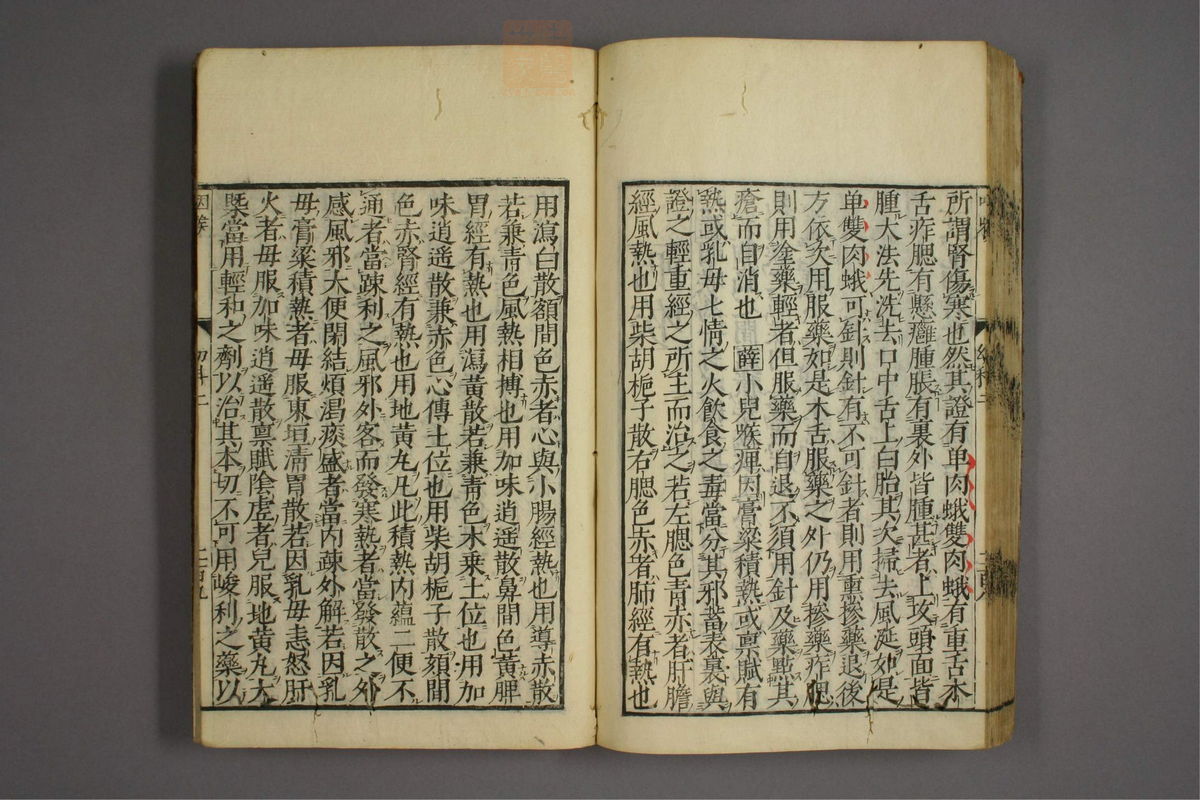 所謂腎傷寒也然其證有单肉蛾雙肉蛾有重舌木
舌痄腮有懸癰腫脹有裹外皆腫甚者上攻頭面皆
腫大法先洗去口中舌上白胎其次掃去風涎如是
单雙肉蛾可針則針有不可針者則用熏摻藥退後
方依次用服藥如是木舌服藥之外仍用摻藥痄腮
則用塗藥輕者但服藥而自退不須用針及藥點其
瘡而自消也 薛 小兒喉痺因膏粱積熱或禀賦有
熱或乳母七情之火飲食之毒當分其邪蓄表裏與
證之輕重經之所主而治之若左腮色青赤者肝膽
經風熱也用柴胡梔子散右腮色赤者肺經有熱也
用瀉白散額間色赤者心與小腸經熱也用導赤散
若兼青色風熱相搏也用加味逍遥散鼻間色黄脾
胃經有熱也用瀉黄散若兼青色木乗土位也用加
味逍遥散兼赤色心傳土位也用柴胡梔子散頦間
色赤腎經有熱也用地黄丸凡此積熱内蘊二便不
通者當疎利之風邪外客而發寒熱者當發散之外
感風邪大便閉結煩渴痰盛者當内疎外解若因乳
母膏粱積熱者母服東垣清胃散若因乳母恚怒肝
火者母服加味逍遥散禀賦陰虚者兒服地黄丸大
槩當用輕和之劑以治其本切不可用峻利之藥以
幼科二